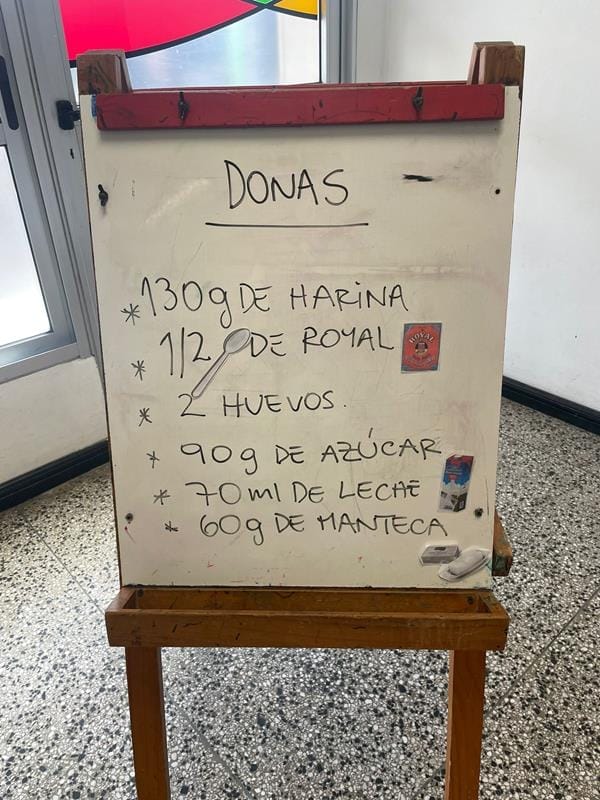 DONAS
* 130g DE HARINA
* 1/2 DE ROYAL
ROYAL
* 2 HUEVOS.
* 90g DE AZÚCAR
* 70ml DE LECHE
* 60g DE MANTECA